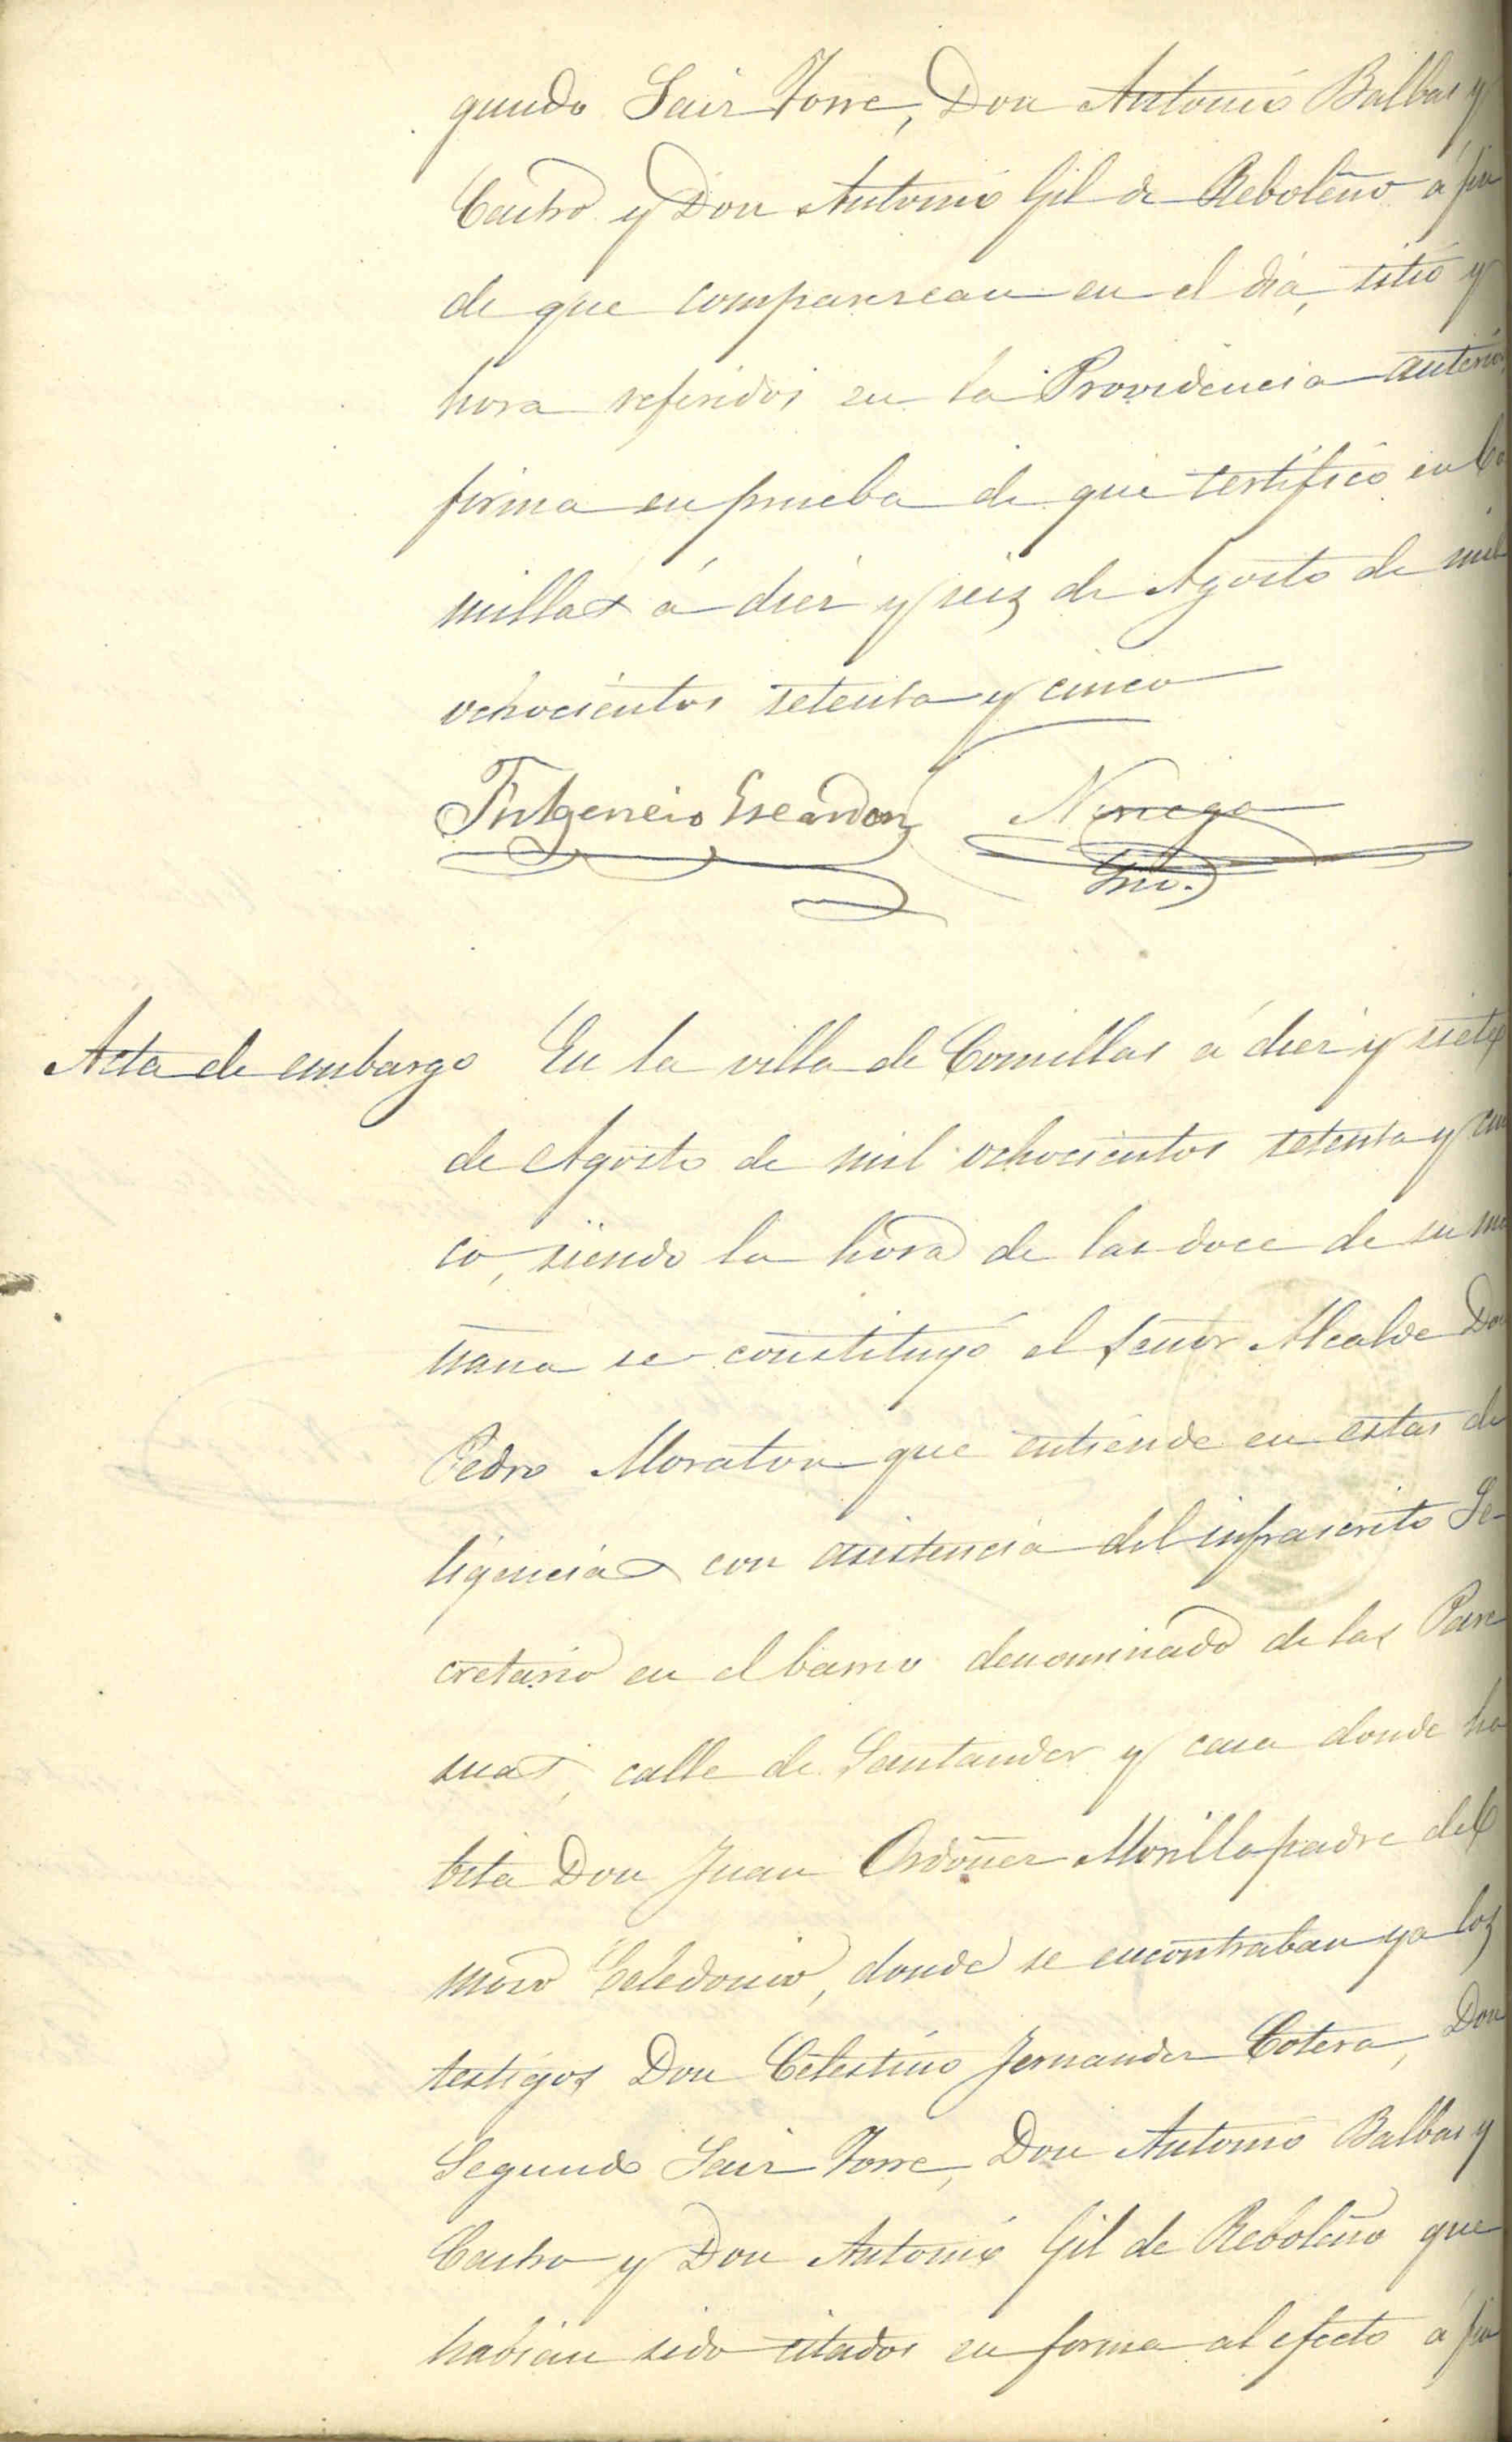 gundo Sair Torre, Don Antonio Balbas y
Castro y Don Antonio Gil de Reboleño á fin
de que comparescan en el dia, sitio y
hora referidos en la Providencia anterior,
firma en prueba de que certifico en Co
millas á diez y seis de Agosto de mil
ochocientos setenta y cinco
Fulgencio Escandon Noriega
Srio.
Acta de embargo En la villa de Comillas á diez y siete
de Agosto de mil ochocientos setenta y cin
co, siendo la hora de las doce de su ma
ñana se constituyó el señor Alcalde Don
Pedro Moraton que entiende en estas di
ligencias con asistencia del infrascrito Se-
cretario en el barrio denominado de las Par
suas, calle de Santander y casa donde ha
bita Don Juan Ordoñez Morillo padre del
mozo Celedonio, donde se encontraban ya los
testigos Don Celestino Fernandez Cotera, Don
Segundo Sair Torre, Don Antonio Balbas y
Castro y Don Antonio Gil de Reboleño que
habian sido citados en forma al efecto á fin